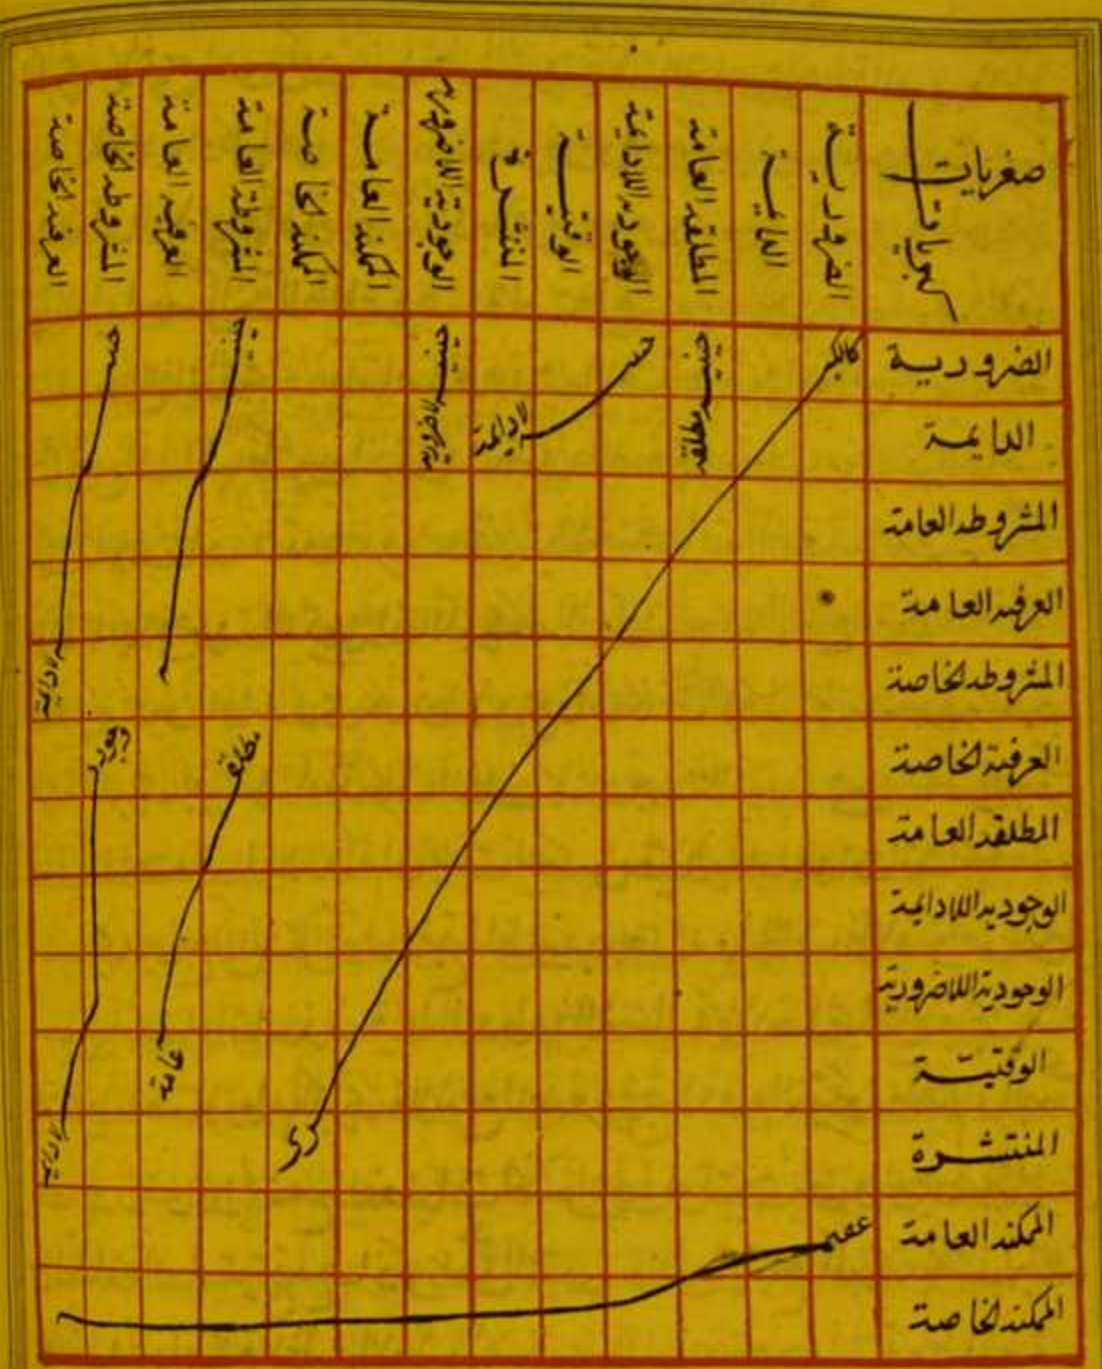 صغريات
كبريات
الضرورية
الدايمة
المطلقه العامة
الوجوديه اللادايمة
الوقتيـة
المنتشرة
الوجودية اللاضروريه
الممكنه العامـة
الممكنه الخاصـة
المشروطة العامة
العرفيه العامة
المشروطه الخاصة
العرفيه الخاصة
الضرورية
الدايمة
المشروطه العامة
العرفيه العامة
المشروطه الخاصة
العرفية الخاصة
المطلقه العامة
الوجوديه اللادايمة
الوجودية اللاضرورية
الوقتيّـة
المنتشـرة
الممكنه العامة
الممكنه الخاصة
كالكبرى
حينيـه مطلقه
لادايمة
حينيـه لاضروريه
لادايمة
مطلقه
عامة
عقيم